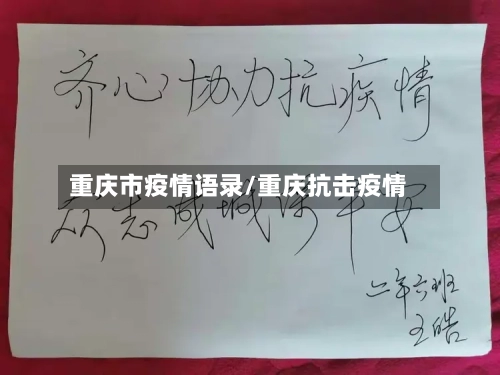 齐心协力抗疫情
重庆市疫情语录/重庆抗击疫情
众志成城保平安
二年六班
王皓